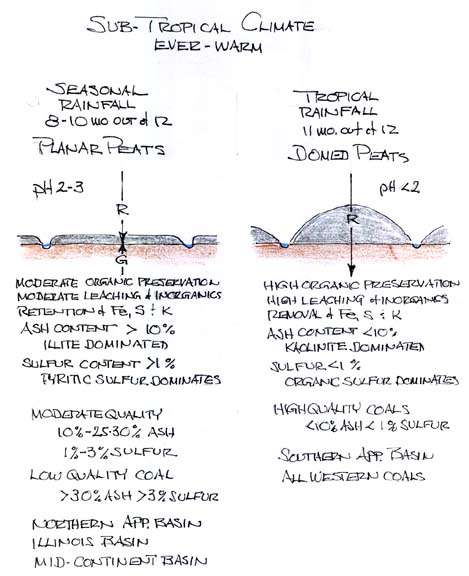 SUB-TROPICAL CLIMATE
EVER-WARM
SEASONAL
RAINFALL
8-10 mo. out of 12
PLANAR PEATS
pH 2-3
R
G
MODERATE ORGANIC PRESERVATION
MODERATE LEACHING of INORGANICS
RETENTION of Fe, S & K
ASH CONTENT > 10%
ILLITE DOMINATED
SULFUR CONTENT >1%
PYRITIC SULFUR DOMINATES
MODERATE QUALITY
10%-25-30% ASH
1%-3% SULFUR
LOW QUALITY COAL
>30% ASH >3% SULFUR
NORTHERN APP. BASIN
ILLINOIS BASIN
MID-CONTINENT BASIN
TROPICAL
RAINFALL
11 mo. out of 12
DOMED PEATS
pH <2
R
HIGH ORGANIC PRESERVATION
HIGH LEACHING of INORGANICS
REMOVAL of Fe, S & K
ASH CONTENT <10%
KAOLINITE DOMINATED
SULFUR <1%
ORGANIC SULFUR DOMINATES
HIGH QUALITY COALS
<10% ASH < 1% SULFUR
SOUTHERN APP. BASIN
ALL WESTERN COALS